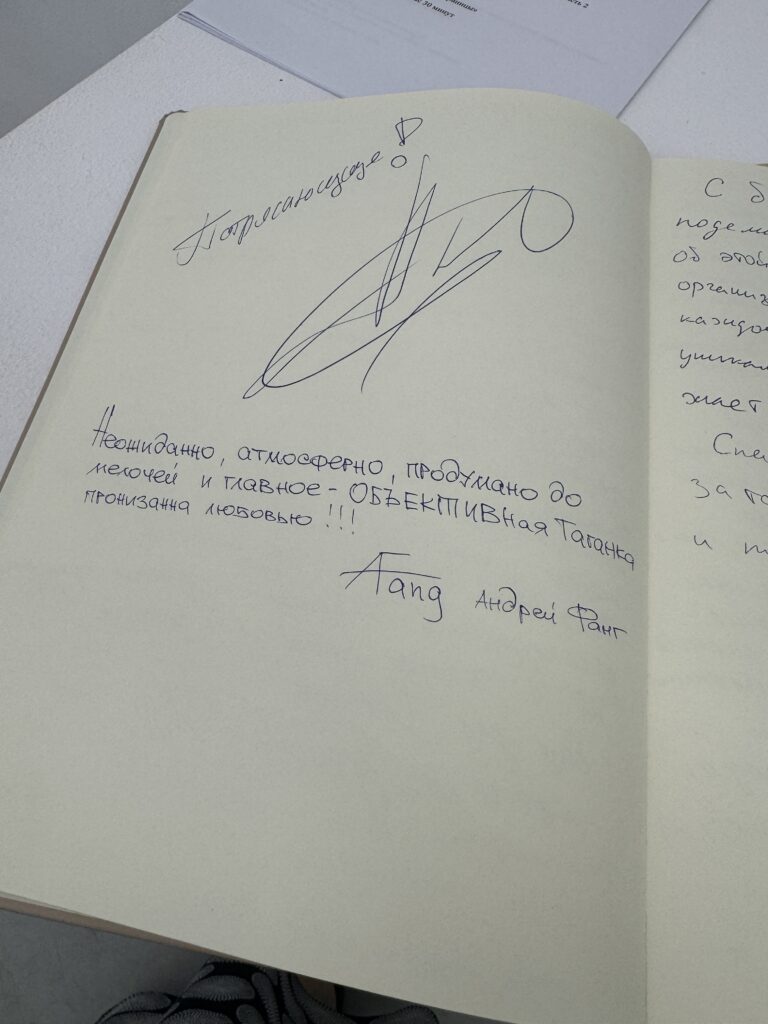 30 минут
Потрясающе!
Неожиданно, атмосферно, продумано до
мелочей и главное - ОБЪЕКТИВНая Таганка
пронизанна любовью!!!
Fang Андрей Фанг
С
об этой
жает
и